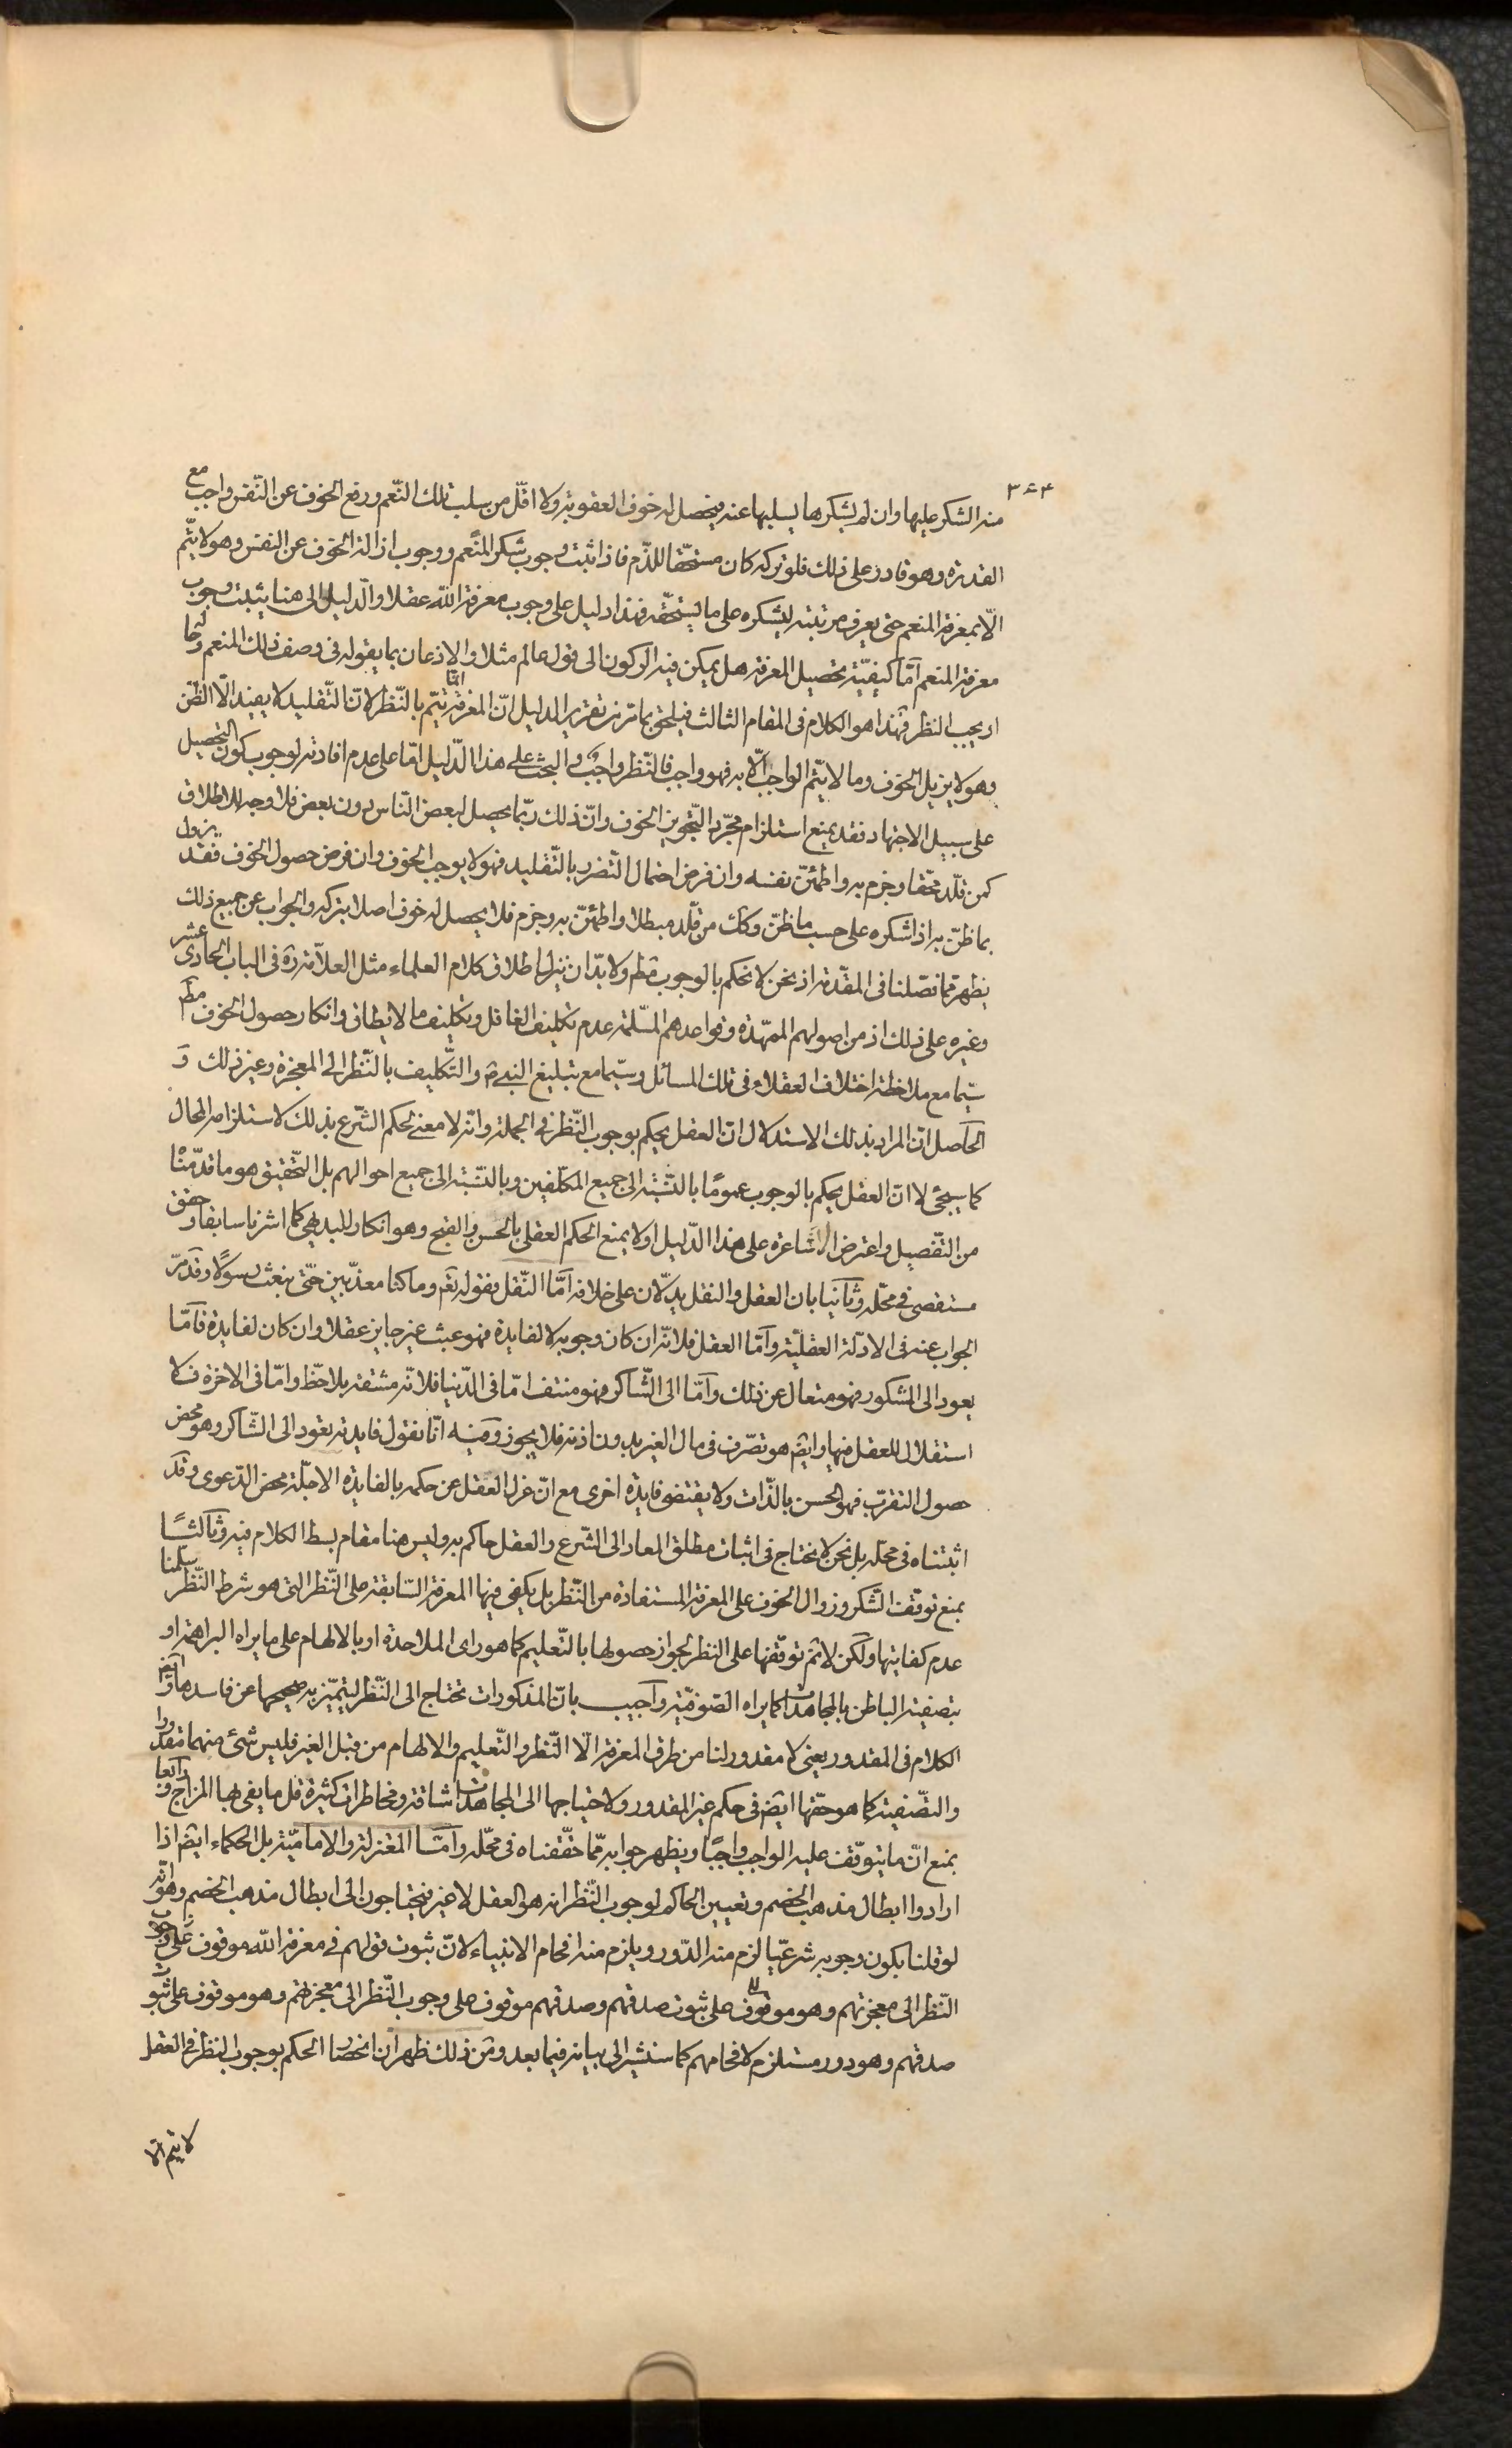 ٣٥٤
منه الشكر عليها وان لم يشكرها يسلبها عنه فيحصل له خوف العقوبة ولا اقلّ من سلب تلك النّعم ورفع الخوف عن النّفس واجب مع
القدرة وهو قادر على ذلك فلو تركه كان مستحقّا للذّم فاذا ثبت وجوب شكر المنعم ووجوب ازالة الخوف عن النفس وهو لا يتّم
الّا بمعرفة المنعم حتى يعرف مرتبته ليشكره على ما يستحقّه فهذا دليل على وجوب معرفة اللّه عقلا والدّليل الى هنا يثبت وجوب
معرفة المنعم امّا كيفيّة تحصيل المعرفة هل يمكن فيه الركون الى قول عالم مثلا والاذعان بما يقوله فى وصف ذلك المنعم
او يجب النظر فهذا هو الكلام فى المقام الثالث فيلحق بما مرّ من تقرير الدليل انّ المعرفة انّما تتمّ بالنّظر لانّ التّقليد لا يفيد الّا الظنّ
وهو لا يزيل الخوف وما لا يتّم الواجب الّا به فهو واجب فالنّظر واجب والبحث على هذا الدّليل امّا على عدم افادته لوجوب كون التحصيل
على سبيل الاجتهاد فقد يمنع استلزام مجرّد التّجويز الخوف وانّ ذلك ربّما يحصل لبعض النّاس دون بعض فلا وجه للاطلاق
كمن قلّد محقّا وجزم به واطمئنّ نفسه وان فرض احتمال التّضرر بالتّقليد فهو لا يوجب الخوف وان فرض حصول الخوف فقد يزول
بما ظنّ به اذا شكره على حسب ما ظنّ وكك من قلّد مبطلا واطمئنّ به وجزم فلا يحصل له خوف اصلا بتركه والجواب عن جميع ذلك
يظهر ممّا فصّلنا فى المقدّمة اذ نحن لا نحكم بالوجوب مطم ولا بدّ ان ينزل اطلاق كلام العلماء مثل العلّامة ره فى الباب الحادى عشر
وغيره على ذلك اذ من اصولهم الممهّدة وقواعدهم المسلّمة عدم تكليف الغافل وتكليف ما لا يطاق وانكار حصول الخوف مطم
سيّما مع ملاحظة اختلاف العقلاء فى تلك المسائل وسيّما مع تبليغ النبى والتّكليف بالنّظر الى المعجزة وغير ذلك و
الحاصل انّ المراد بذلك الاستدلال انّ العقل يحكم بوجوب النّظر فى الجملة وانّه لا معنى لحكم الشّرع بذلك لاستلزامه المحال
كما سيجئ لا انّ العقل يحكم بالوجوب عمومًا بالنّسبة الى جميع المكلّفين وبالنّسبة الى جميع احوالهم بل التّحقيق هو ما قدّمناه
من التّفصيل واعترض الاشاعرة على هذا الدّليل اولا بمنع الحكم العقلى بالحسن والقبح وهو انكار للبديهى كما اشرنا سابقا وحقق
مستقصى فى محلّه وثانيا بان العقل والنقل يدلّان على خلافه امّا النّقل فقوله تعم وما كنا معذّبين حتّى نبعث رسولًا وقد مرّ
الجواب عنه فى الادلّة العقليّة وامّا العقل فلانّه ان كان وجوبه لا لفايدة فهو عبث غير جايز عقلا وان كان لفايدة فامّا
يعود الى المشكور فهو متعال عن ذلك وامّا الى الشّاكر فهو منتف امّا فى الدّنيا فلانّه مشقة بلا حظّ وامّا فى الاخرة فلا
استقلال للعقل فيها وايضم هو تصّرف فى مال الغير بدون اذنه فلا يجوز وفيه انّا نقول فايدته تعود الى الشّاكر وهو محض
حصول التقرّب فهو الحسن بالذّات ولا يقتضى فايدة اخرى مع انّ عزل العقل عن حكمه بالفايدة الاجلّة محض الدّعوى وقد
اثبتناه فى محلّه بل نحن لا نحتاج فى اثبات مطلق المعاد الى الشّرع والعقل حاكم به وليس هنا مقام بسط الكلام فيه وثالثًا
بمنع توقّف الشّكر وزوال الخوف على المعرفة المستفادة من النّظر بل يكفى فيها المعرفة السّابقة على النّظر التى هو شرط النّظر سلّمنا
عدم كفايتها ولكن لا نم توقّفها على النظر لجواز حصولها بالتّعليم كما هو راى الملاحدة او بالالهام على ما يراه البراهمة او
بتصفية الباطن بالمجاهدات كما يراه الصّوفيّة واجيب بانّ المذكورات تحتاج الى النّظر ليتميّز به صحيحها عن فاسدها وايضم
الكلام فى المقدور يعنى لا مقدور لنا من طرق المعرفة الّا النّظر والتّعليم والالهام من قبل الغير فليس شئ منهما مقدورا
والتّصفية كما هو حقّها ايضم فى حكم غير المقدور ولاحتياجها الى المجاهدات شاقة ومخاطرات كثيرة قل ما يفى بها المزاج ورابعا
بمنع انّ ما يتوقّف عليه الواجب واجبًا ويظهر جوابه ممّا حقّقناه فى محلّه وامّا المعتزلة والاماميّة بل الحكماء ايضم اذا
ارادوا ابطال مذهب الخصم وتعيين الحاكم لوجوب النّظر انه هو العقل لا غير فيحتاجون الى ابطال مذهب الخصم وهو انّه
لو قلنا بكون وجوبه شرعيّا لزم منه الدّور ويلزم منه افحام الانبياء لانّ ثبوت قولهم فى معرفة اللّه موقوف على وجوب
النّظر الى معجزتهم وهو موقوف على ثبوت صدقهم وصدقهم موقوف على وجوب النّظر الى معجزتهم وهو موقوف على ثبوت
صدقهم وهو دور مستلزم لافحامهم كما سنشير الى بيانه فيما بعد ومن ذلك ظهر ان انحصار الحكم بوجوب النظر فى العقل
لا يتم الّا